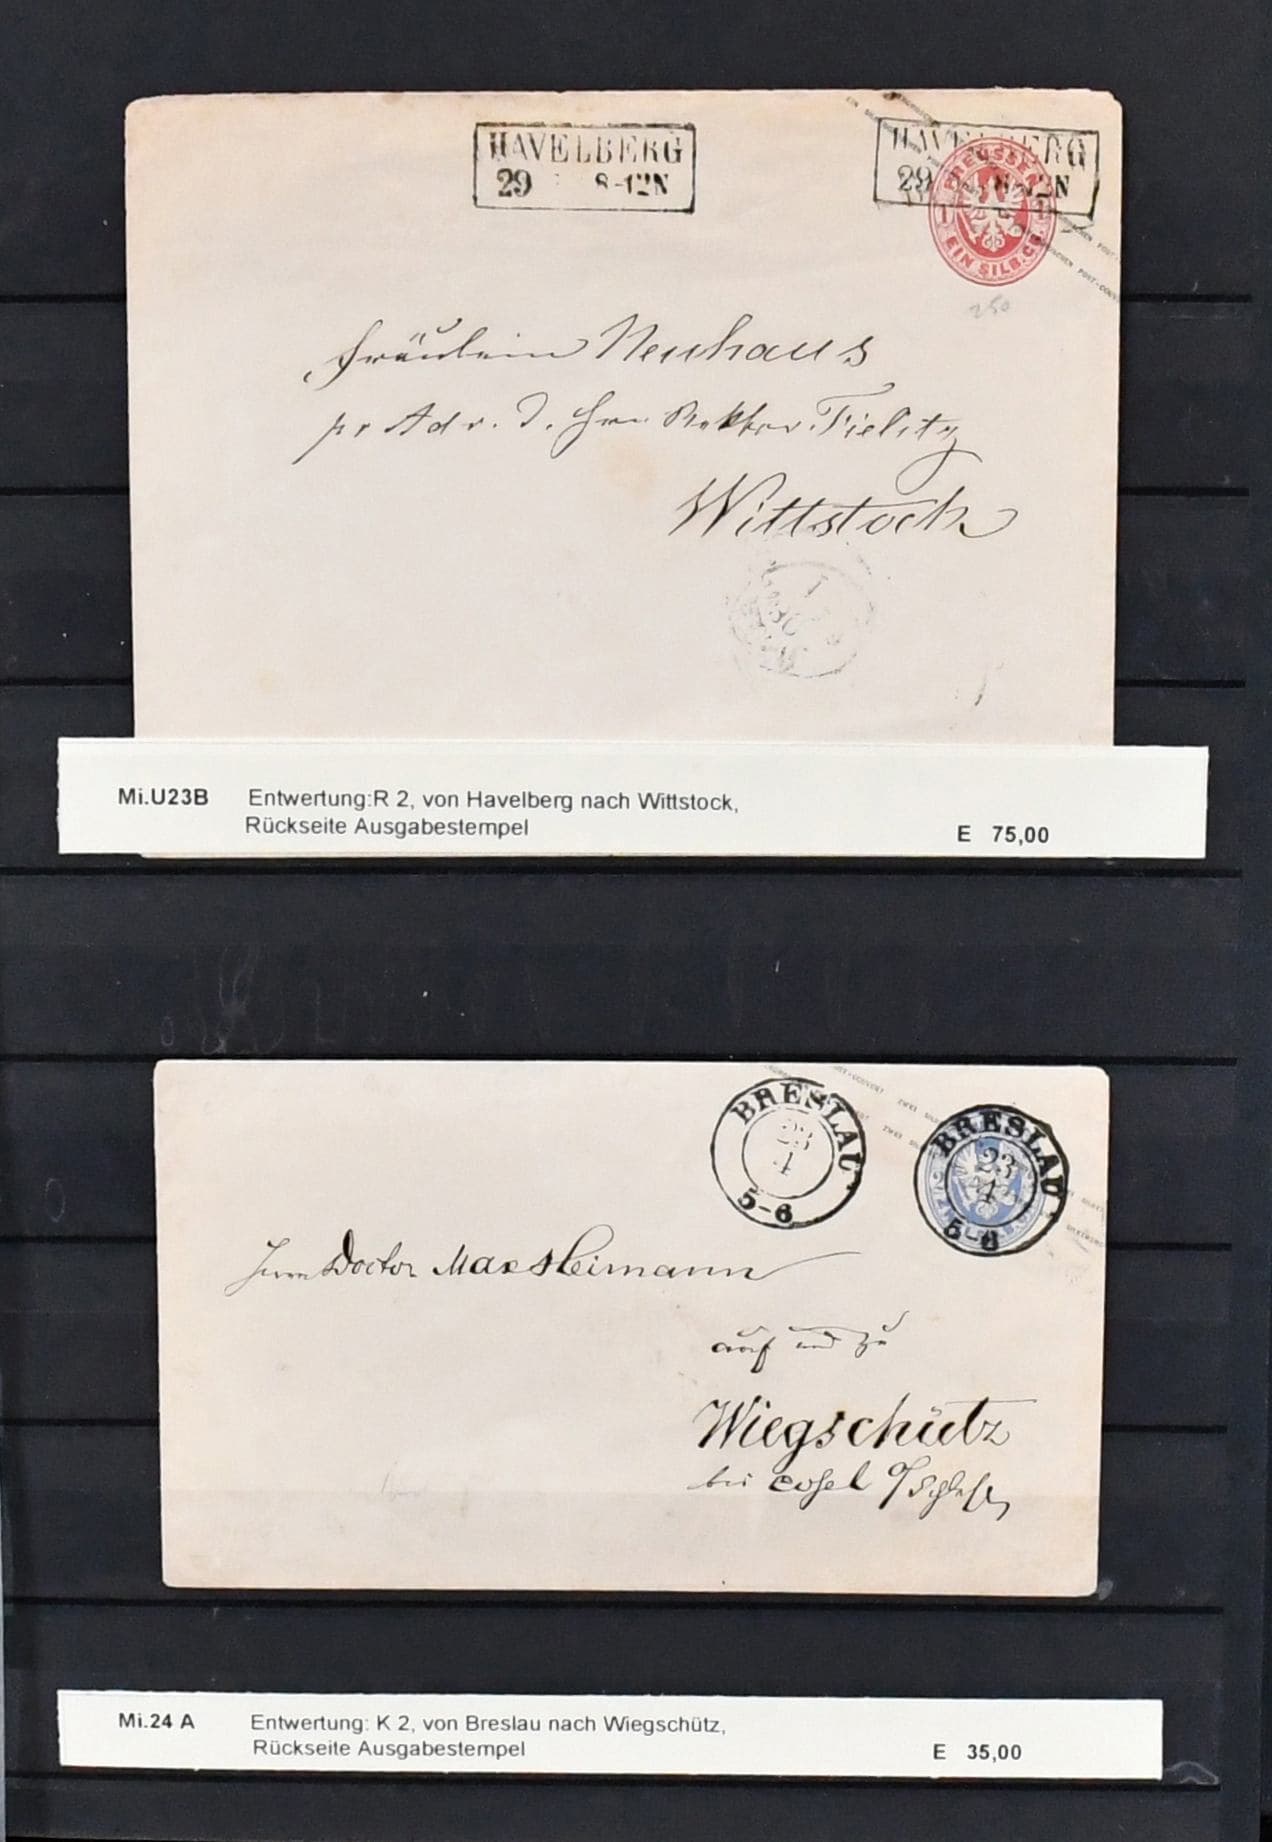 HAVELBERG
29 8-12N
HAVELBERG
29 8-12N
PREUSSEN
1 1
EIN SILB.GR.
250
Fräulein Neuhaus
pr Adr. d. Hrn Rektor Fielitz
Wittstock
Mi.U23B Entwertung:R 2, von Havelberg nach Wittstock,
Rückseite Ausgabestempel
E 75,00
BRESLAU
23
4
5-6
BRESLAU
23
4
5-6
POST-COUVERT ZWEI
ZWEI
Herrn Doctor Max Heimann
auf und zu
Wiegschütz
bei Cosel O/Schles.
Mi.24 A Entwertung: K 2, von Breslau nach Wiegschütz,
Rückseite Ausgabestempel
E 35,00